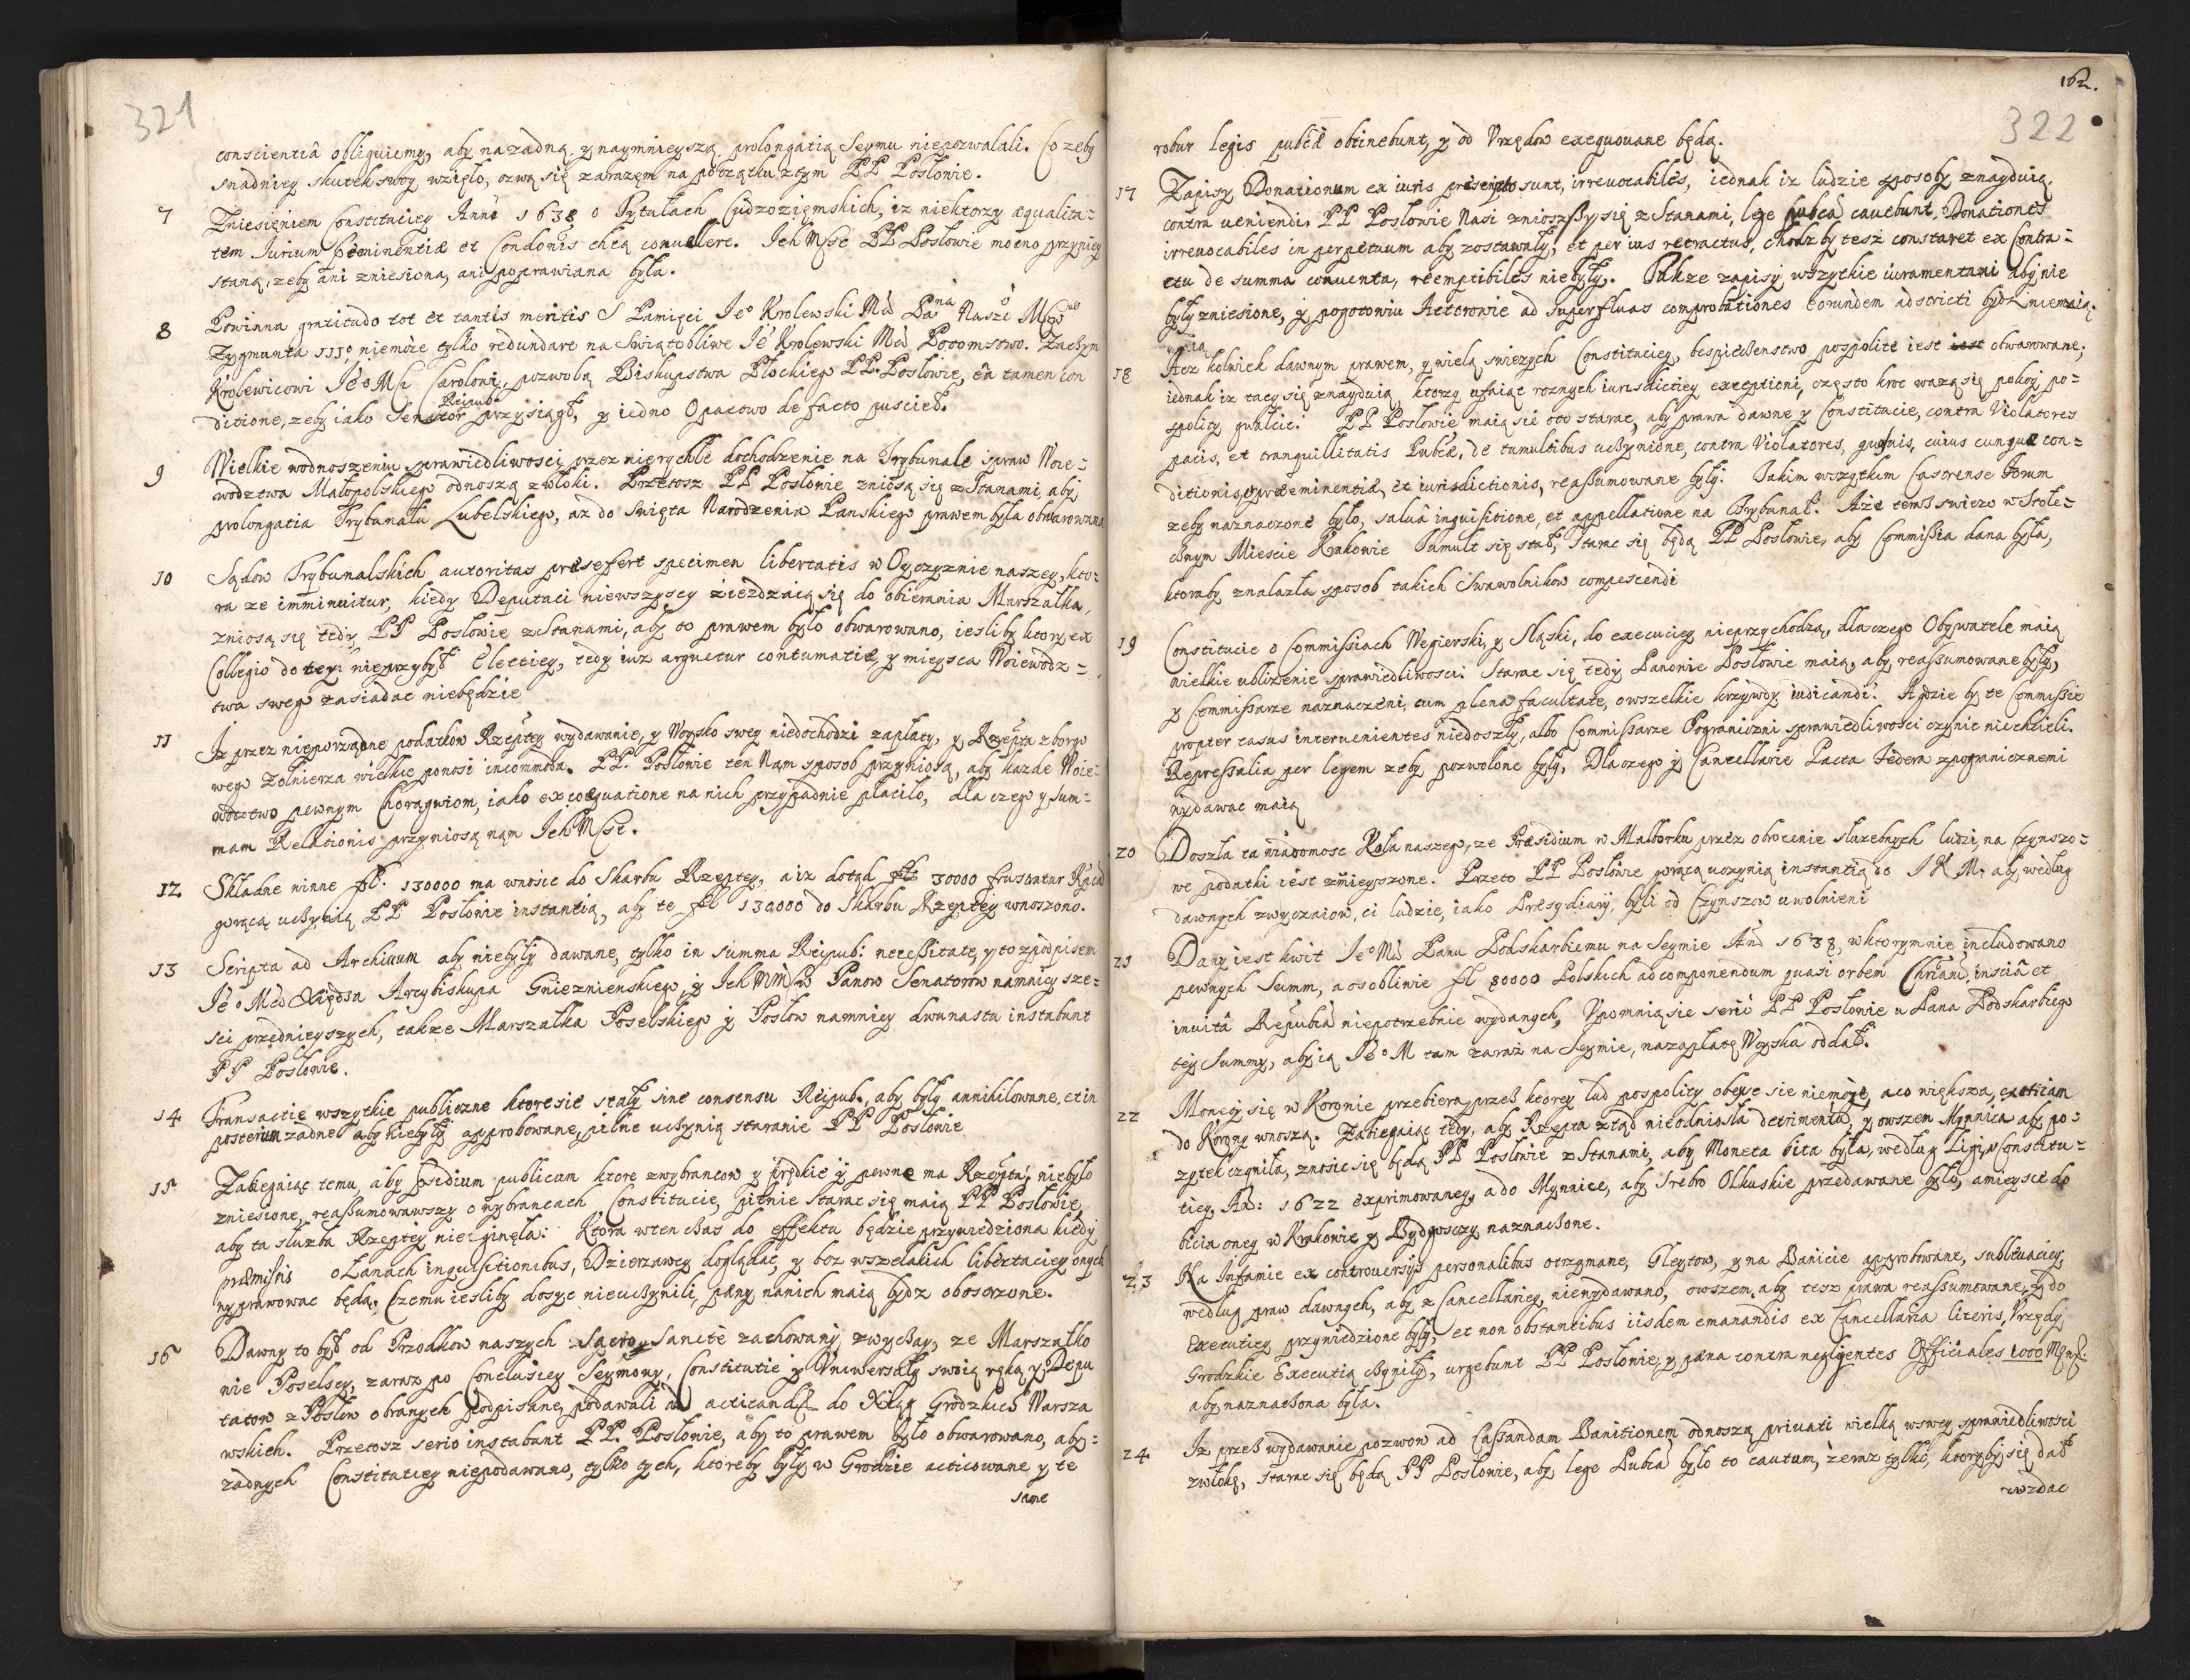 321
conscientiâ obliguiemy, aby nazadną, y naymnieyszą prolongatią Seymu niepozwalali. Co zeby
snadniey skutek swoy wzięło, ozwą się zarazem na początku z tym PP Posłowie.
7 Zniesieniem Constituciey Anno 1638 o Tytułach Cudzoziemskich, iz niektorzy æqualita-
tem Iurium Eeminentiæ et Condonis chcą convellere. Ich Mśc PP Posłowie mocno przy niey
staną, zeby ani zniesiona, ani poprawiana była.
8 Powinna gratitudo tot et tantis meritis S Pamięci Ieo Krolewski Mci Pana Naszeo Mgo
Zygmunta IIIo niemoze tylko redundare na Swiątobliwe Ie Krolewski Mci Potomstwo. Zaczym
Krolewicowi Ieo Mci Carolowi, pozwolą Biskupstwa Płockiego PP. Posłowie, eâ tamen con
ditione, zeby iako Senator Reipub: przysiągł, y iedno Opactwo de facto puscieł.
9 Wielkie wodnoszeniu sprawiedliwosci przez nierychłe dochodzenie na Trybunale spraw Woie-
wodztwa Małopolskiego odnoszą zwłoki. Przetosz PP Posłowie zniosą się z Stanami, aby
prolongatia Trybunału Lubelskiego, az do Swięta Narodzenia Panskiego prawem była obwarowana
10 Sądow Trybunalskich autoritas præsefert specimen libertatis w Oyczyznie naszey, kto-
ra ze imminuitur, kiedy Deputaci niewszyscy ziezdzaią się do obierania Marszałka,
zniosą się tedy PP Posłowie z Stanami, aby to prawem było obwarowano, iesliby ktory ex
Collegio do tey nieprzybył Electiey, tedy iuz arguetur contumatiæ, y mieysca Woiewodz-
twa swego zasiadac niebędzie
11 Iz przez nieporządne podatkow Rzeptey wydawanie, y Woysko swey niedochodzi zapłaty, y Rzepta zborgo
wego Zołnierza wielkie ponosi incommoda. PP. Posłowie ten Nam sposob przyniosą, aby kazde Woie-
wodztwo pewnym Chorągwiom, iako ex coæquatione na nich przypadnie płaciło, dla czego y Sum-
mam Relationis przyniosą nąm Ich Mśc.
12 Składne winne fl. 130000 ma wnosic do Skarbu Rzeptey, a iz dotąd fl: 30000
gorącą uczynią PP Posłowie instantią, aby te fl 130000 do Skarbu Rzeptey wnoszono.
13 Scripta ad Archivum aby niebyły dawane, tylko in summa Reipub: necessitate, y to zpodpisem
Ieo Mci Xiędza Arcybiskupa Gnieznienskiego, y Ich Panow Senatorow namniey sze-
sci przednieyszych, takze Marszałka Poselskiego y Posłow namniey dwunastu instabunt
PP Posłowie.
14 Transactie wszytkie publiczne ktoresie stały sine consensu Reipub., aby były annihilowane, et in
posterum zadne aby niebyły approbowane, pilne uczynią staranie PP Posłowie
15 Zabiegaiąc temu, aby publicum ktore zwybrancow y prędkie y pewne ma Rzepta, niebyło
zniesione, reassumowawszy o wybrancach Constitucie, pilnie starac się maią PP Posłowie,
aby ta słuzba Rzeptey nie ginęła. Ktora wtenczas do effektu będzie przywiedziona kiedy
præmissis o Łanach inquisitionibus, Dzierzawcy doglądac, y boz wszelakich libertaciey onych
wyprawowac będą. Czemu iesliby dosyc nieuczynili, pæny nanich maią bydz obostrzone.
16 Dawny to był od Przodkow naszych sacro sancte zachowany zwyczay, ze Marszałko
nie Poselscy, zaraz po Conclusiey Seymowy, Constitutie y Vniwersały swoią ręką y Depu
tatow z Posłow obranych podpisane, podawali ad acticandû do Xiąg Grodzkich Warsza
wskich. Przetosz serio instabunt PP. Posłowie, aby to prawem było obwarowano, aby-
zadnych Constitutiey niepodawano, tylko tych, ktoreby były w Grodzie acticowane y te
same
162.
322
robur legis publæ obtinebunt, y od Vrzędow exequowane będą.
17 Zapisy Donationum ex iuris præscripto sunt, irrevocabiles, iednak iz ludzie sposoby znayduią
contra veniendi. PP Posłowie Nasi zniozszysię z Stanami, lege publca cavebunt, Donationes
irrevocabiles in perpetuum aby zostawały, et per ius retractus, chodzby tesz constaret ex Contra-
ctu de summa conventa, reemptibiles niebyły. Takze zapisy wszytkie iuramentami aby nie
były zniesione, y pogotowiu Actorowie ad superfluas comprobationes eorundem adstricti bydz niemaią.
18 Acz kolwiek dawnym prawem, y wielą swiezych Constituciey, bespieczenstwo pospolite iest iest obwarowane,
iednak iz tacy się znayduią, ktorzy ufaiąc roznych iurisdictiey exceptioni, często kroc wazą się pokoy po-
spolity gwałcic. PP Posłowie maią sie oto starac, aby prawa dawne y Constitucie, contra Violatores
pacis, et tranquillitatis Publcæ, de tumultibus uczynione, contra Violatores, cuius cunque con-
ditionis, præeminentiæ, et iurisdictionis, reassumowane były. Takim wszytkim Castrense forum
zeby naznaczone było, salvâ inquisitione, et appellatione na Trybunał. Aze temsz swiezo w Stołe-
cznym Miescie Krakowie Tumult się stał, starac się będą PP Posłowie, aby Commissia dana była,
ktoraby znalazła sposob takich Swawolnikow compescendi
19 Constitucie o Commissiach Węgierski, y Sląski, do execuciey nieprzychodzą, dlaczego Obywatele maią
wielkie ublizenie sprawiedliwosci. Starac się tedy Panowie Posłowie maią, aby reassumowane były,
y Commissarze naznaczeni, cum plena facultate, o wszelkie krzywdy iudicandi. A gdzie by te Commissie
propter casus intervenientes niedoszły, albo Commissarze Pograniczni sprawiedliwosci czynic niechcieli.
Repressalia per legem zeby pozwolone były, Dlaczego y Cancellarie Pacta Fœdera zpogranicznemi
wydawac maią
20 Doszła ta wiadomosc Koła naszego, ze Præsidium w Malborku przez obrocenie słuzebnych ludzi, na Czynszo-
we podatki iest zmieyszone. Przeto PP Posłowie gorącą uczynią instantią do I K M. aby według
dawnych zwyczaiow, ci ludzie, iako Præsydiarÿ, byli od Czynszow uwolnieni
21 Dany iest kwit Ieo Mci Panu Podskarbiemu na Seymie And 1638, w ktorym nie includowano
pewnych Summ, a osobliwie fl 80000 Polskich ad componendum quasi orbem Chrianû, insciâ et
invitâ Repubca niepotrzebnie wydanych, Vpomnią sie serio PP Posłowie u Pana Podskarbiego
tey Summy, aby ią Ieo M tam zaraz na Seymie, nazapłatę Woyska oddał.
22 Monety się w Koronie przebiera, przesz ktorey lud pospolity obeysc sie niemoze, a co większa,
do Korony wnoszą. Zabiegaiąc tedy, aby Rzepta ztąd nieodniosła detrimentû, y owszem Mynnica aby po-
zytek czyniła, znosic się będą PP Posłowie z Stanami, aby Moneta bita była, według Ligi Constitu-
tiey An: 1622 exprimowaney, a do Mynnice, aby srebro Olkuskie przedawane było, a mieysce do
bicia oney w Krakowie y Bydgosczy naznaczone.
23 Na Infamie ex controversÿs personalibus otrzymane, Gleytow, y na Banicie approbowane, sublevaciey,
według praw dawnych, aby z Cancellariey, niewydawano, owszem aby tesz prawa reassumowane, y do
Executiey przywiedzione były, et non obstantibus iisdem emanandis ex Cancellaria literis, Vrzędy
Grodzkie Executią czyniły, urgebunt PP Posłowie, y pæna contra negligentes Officiales 1000
aby naznaczona była.
24 Iz przesz wydawanie pozwow ad Cassandam Banitionem odnoszą privati wielką w swey sprawiedliwosci
zwłokę, starac się będą PP Posłowie, aby lege Publca było to cautum, zeraz tylko, ktoryby się dał
wzdac